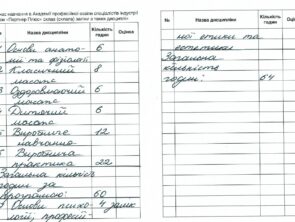 час навчання в Академії професійної освіти спеціалістів індустрії
«Партнер Плюс» склав (склала) заліки з таких дисциплін
№ Назва дисципліни Кількість годин Оцінка
Основи анато- 6
мії та фізіології
Класичний 8
масаж
Оздоровлюючий 6
масаж
Дитячий 6
масаж
Виробниче 12
навчання
Виробнича
практика 22
Загальна кількість
годин за
програмою: 60
Основи психо- 4 залік
логії, професій-
№ Назва дисципліни Кількість годин Оцінка
ної етики та
естетики
Загальна
кількість
годин: 64